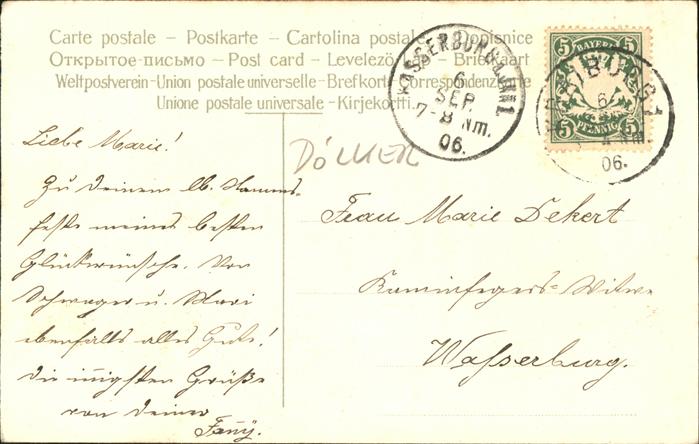 Carte postale – Postkarte – Cartolina postale – Dopisnice
Открытое письмо – Post card – Levelező-Lap – Briefkaart
Weltpostverein-Union postale universelle – Brefkort-Correspondenzkarte
Unione postale universale – Kirjekortti.
WASSERBURG a. INN 1
6
SEP.
7-8 Nm.
06.
BAYERN
5 5
PFENNIG
5 5
6
06.
DÓLLKER
Liebe Marie!
Zu Deinem lb. Namens-
feste meine besten
Glückwünsche. Von
Schwager u. Mari
ebenfalls alles Gute!
Die innigsten Grüße
von Deiner
Fanny.
Frau Marie Dekert
Kaminfegers-Witwe
Wasserburg.